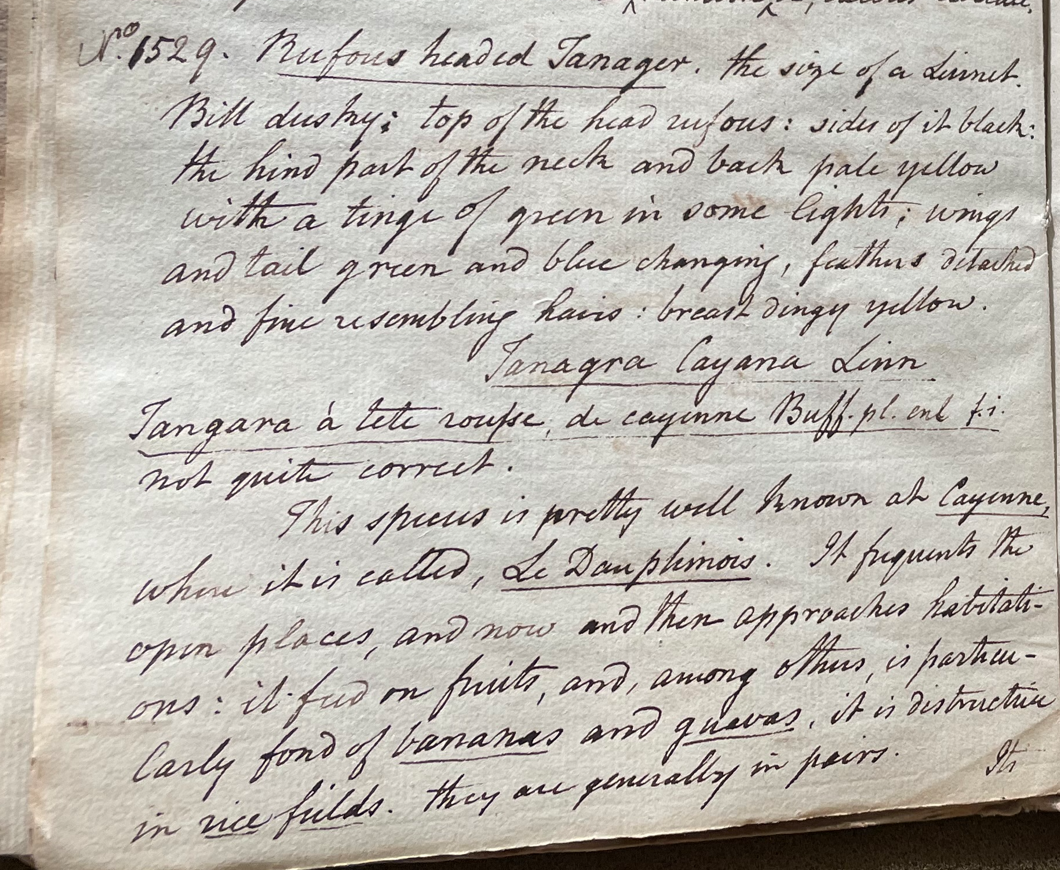 No. 1529. Rufous headed Tanager. the size of a Linnet.
Bill dusky: top of the head rufous: sides of it black:
the hind part of the neck and back pale yellow
with a tinge of green in some lights; wings
and tail green and blue changing, feathers detached
and fine resembling hairs: breast dingy yellow.
Tanagra Cayana Linn
Tangara à tete rousse, de cayenne Buff. pl. enl f. i.
not quite correct.
This species is pretty well known at Cayenne,
where it is called, Le Dauphinois. It frequents the
open places, and now and then approaches habitati-
ons: it feed on fruits, and, among others, is particu-
larly fond of bananas and guavas, it is distructive
in rice fields. they are generally in pairs.
Its